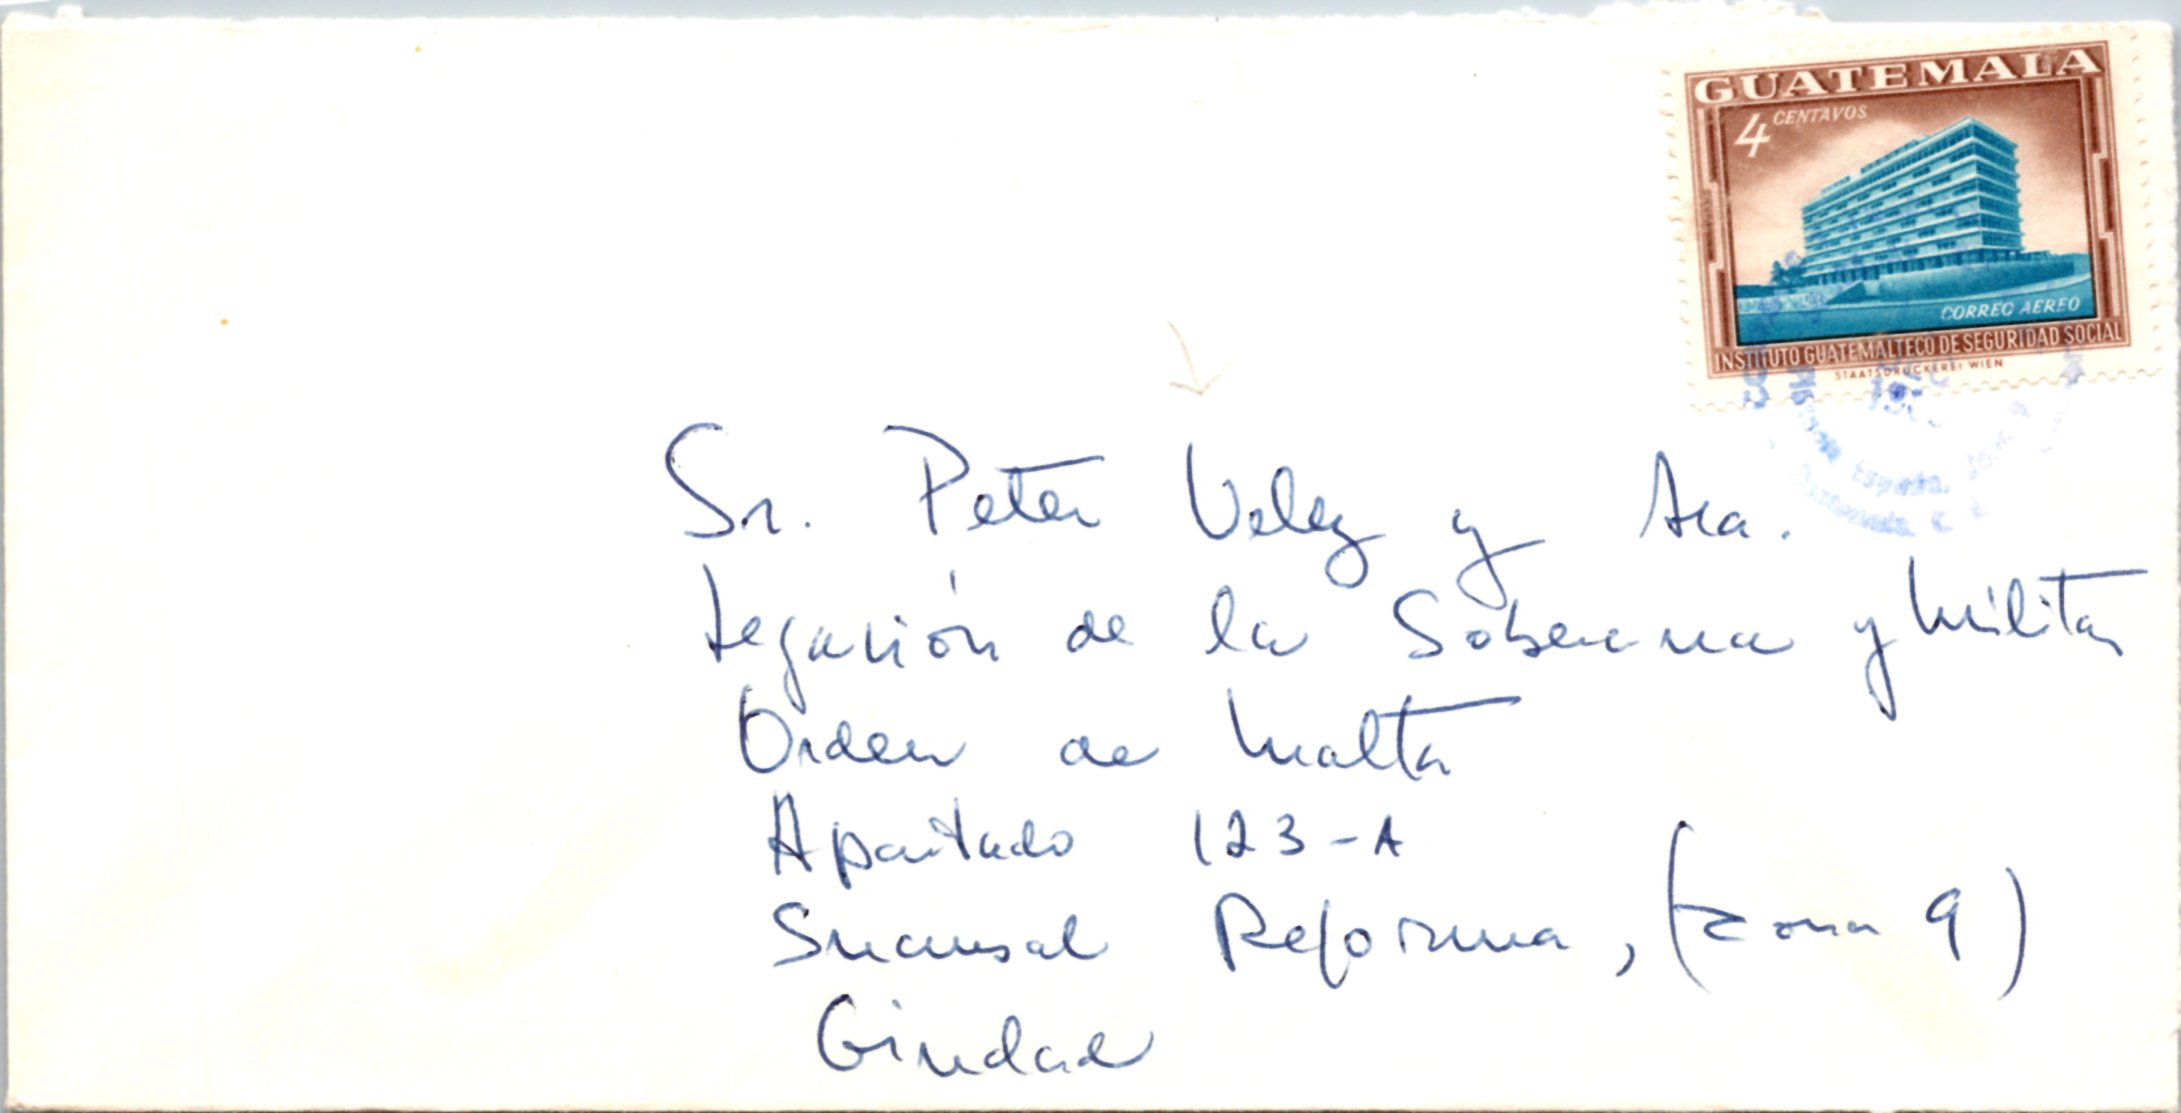 GUATEMALA
4 CENTAVOS
CORREO AEREO
INSTITUTO GUATEMALTECO DE SEGURIDAD SOCIAL
STAATSDRUCKEREI WIEN
España.
Guatemala, C.
Sr. Peter Velez y Sra.
Legación de la Soberana y Militar
Orden de Malta
Apartado 123-A
Sucursal Reforma, (zona 9)
Ciudad